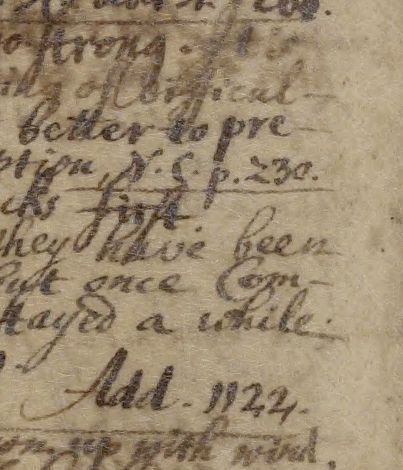 so strong. It is
better to pre-
ption, N. S. p. 230.
cks first
they have been
but once Com-
stayed a while.
Add. 1122.
own up with wind.